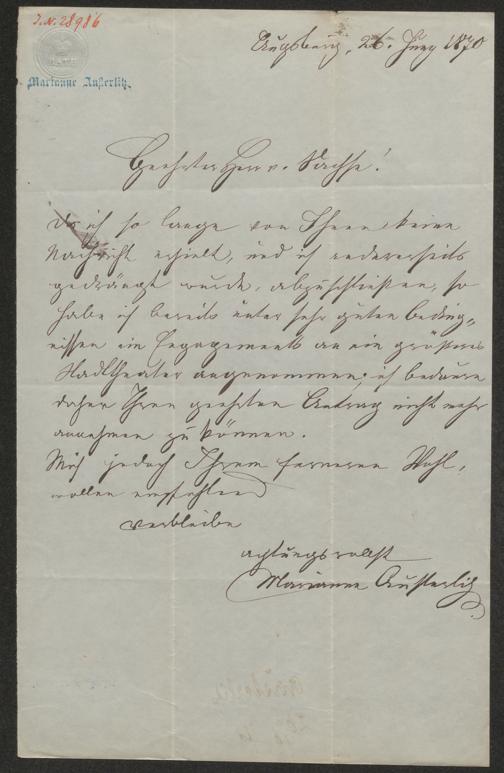 J.N. 28986
Marianne Außerlitz.
Augsburg, 26. Juny 1870
Geehrter Herr v. Sachse!
Da ich so lange von Ihnen keine
Nachricht erhielt, und ich andererseits
gedrängt wurde, abzuschließen, so
habe ich bereits unter sehr guten Beding-
nissen ein Engagement an ein größeres
Stadttheater angenommen; ich bedaure
daher Ihren geehrten Antrag nicht mehr
annehmen zu können.
Mich jedoch Ihrem ferneren Wohl-
wollen empfehlend
verbleibe
achtungsvollst
Marianne Austerlitz